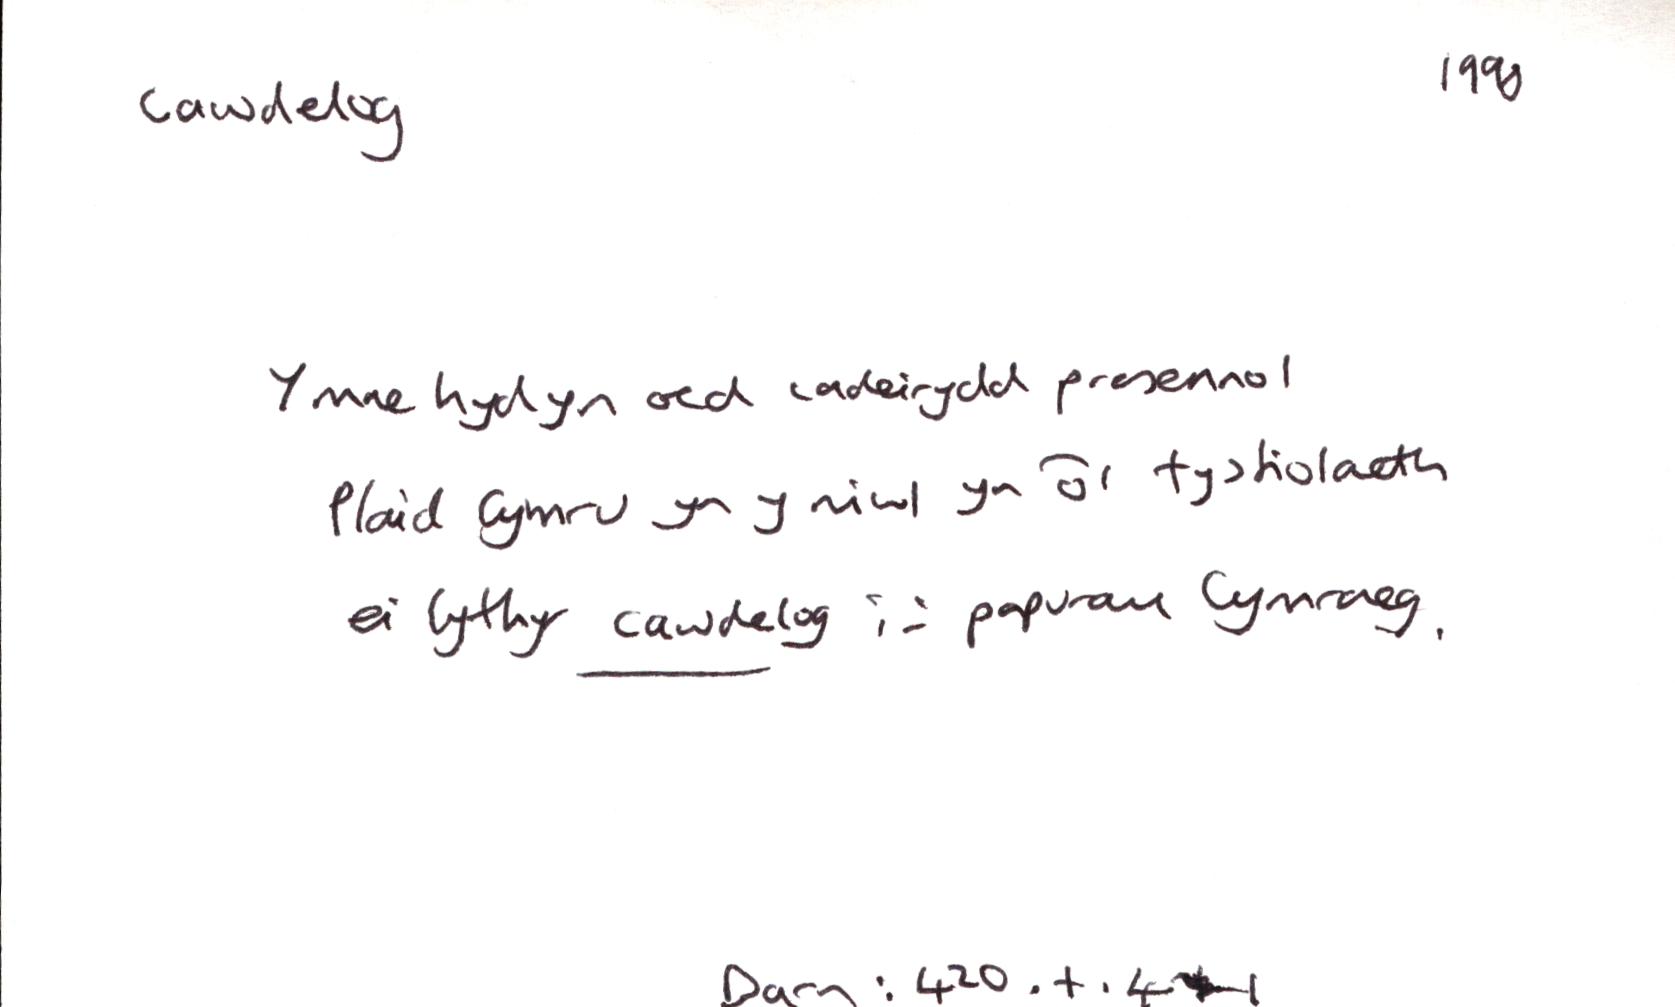 cawdelog
1998
Y mae hyd yn oed cadeirydd presennol
Plaid Cymru yn y niwl yn ôl tystiolaeth
ei lythyr cawdelog i'r papurau Cymraeg.
Darn: 420.t.4